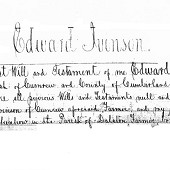 Edward Ivenson.
st Will and Testament of me Edward
of Cumrew and County of Cumberland
all previous Wills and Testaments
of Cumrew aforesaid Farmer and my
in the Parish of Dalston Farmer